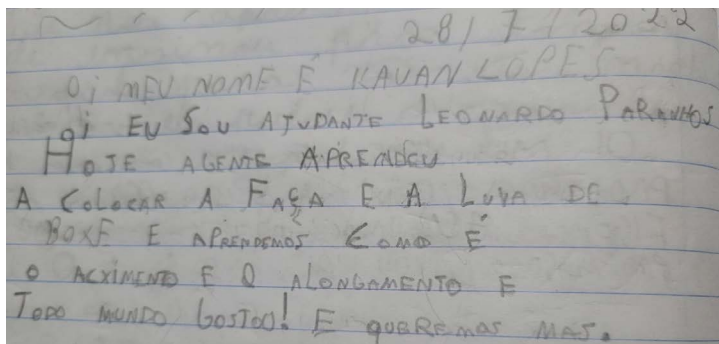 28/7/2022
Oi MEU NOME É KAUAN LOPES
Oi EU SOU AJUDANTE LEONARDO PARANHOS
HOJE AGENTE APRENDEU
A COLOCAR A FAÇA E A LUVA DE
BOXE E APRENDEMOS COMO É
O ACXIMENTO E O ALONGAMENTO E
TODO MUNDO GOSTOO! E QUEREMOS MAS.